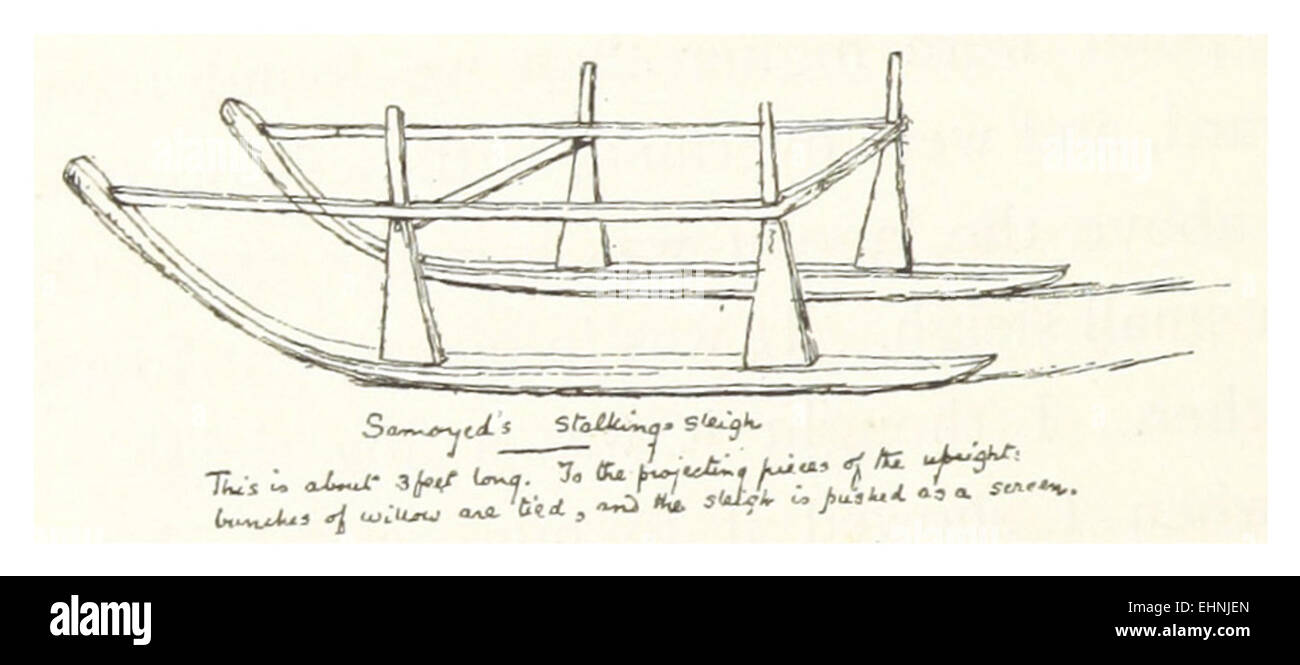 Samoyed's Stalking-Sleigh
This is about 3 feet long. To the projecting pieces of the upright:
bunches of willow are tied, and the sleigh is pushed as a screen.
alamy
Image ID: EHNJEN
www.alamy.com